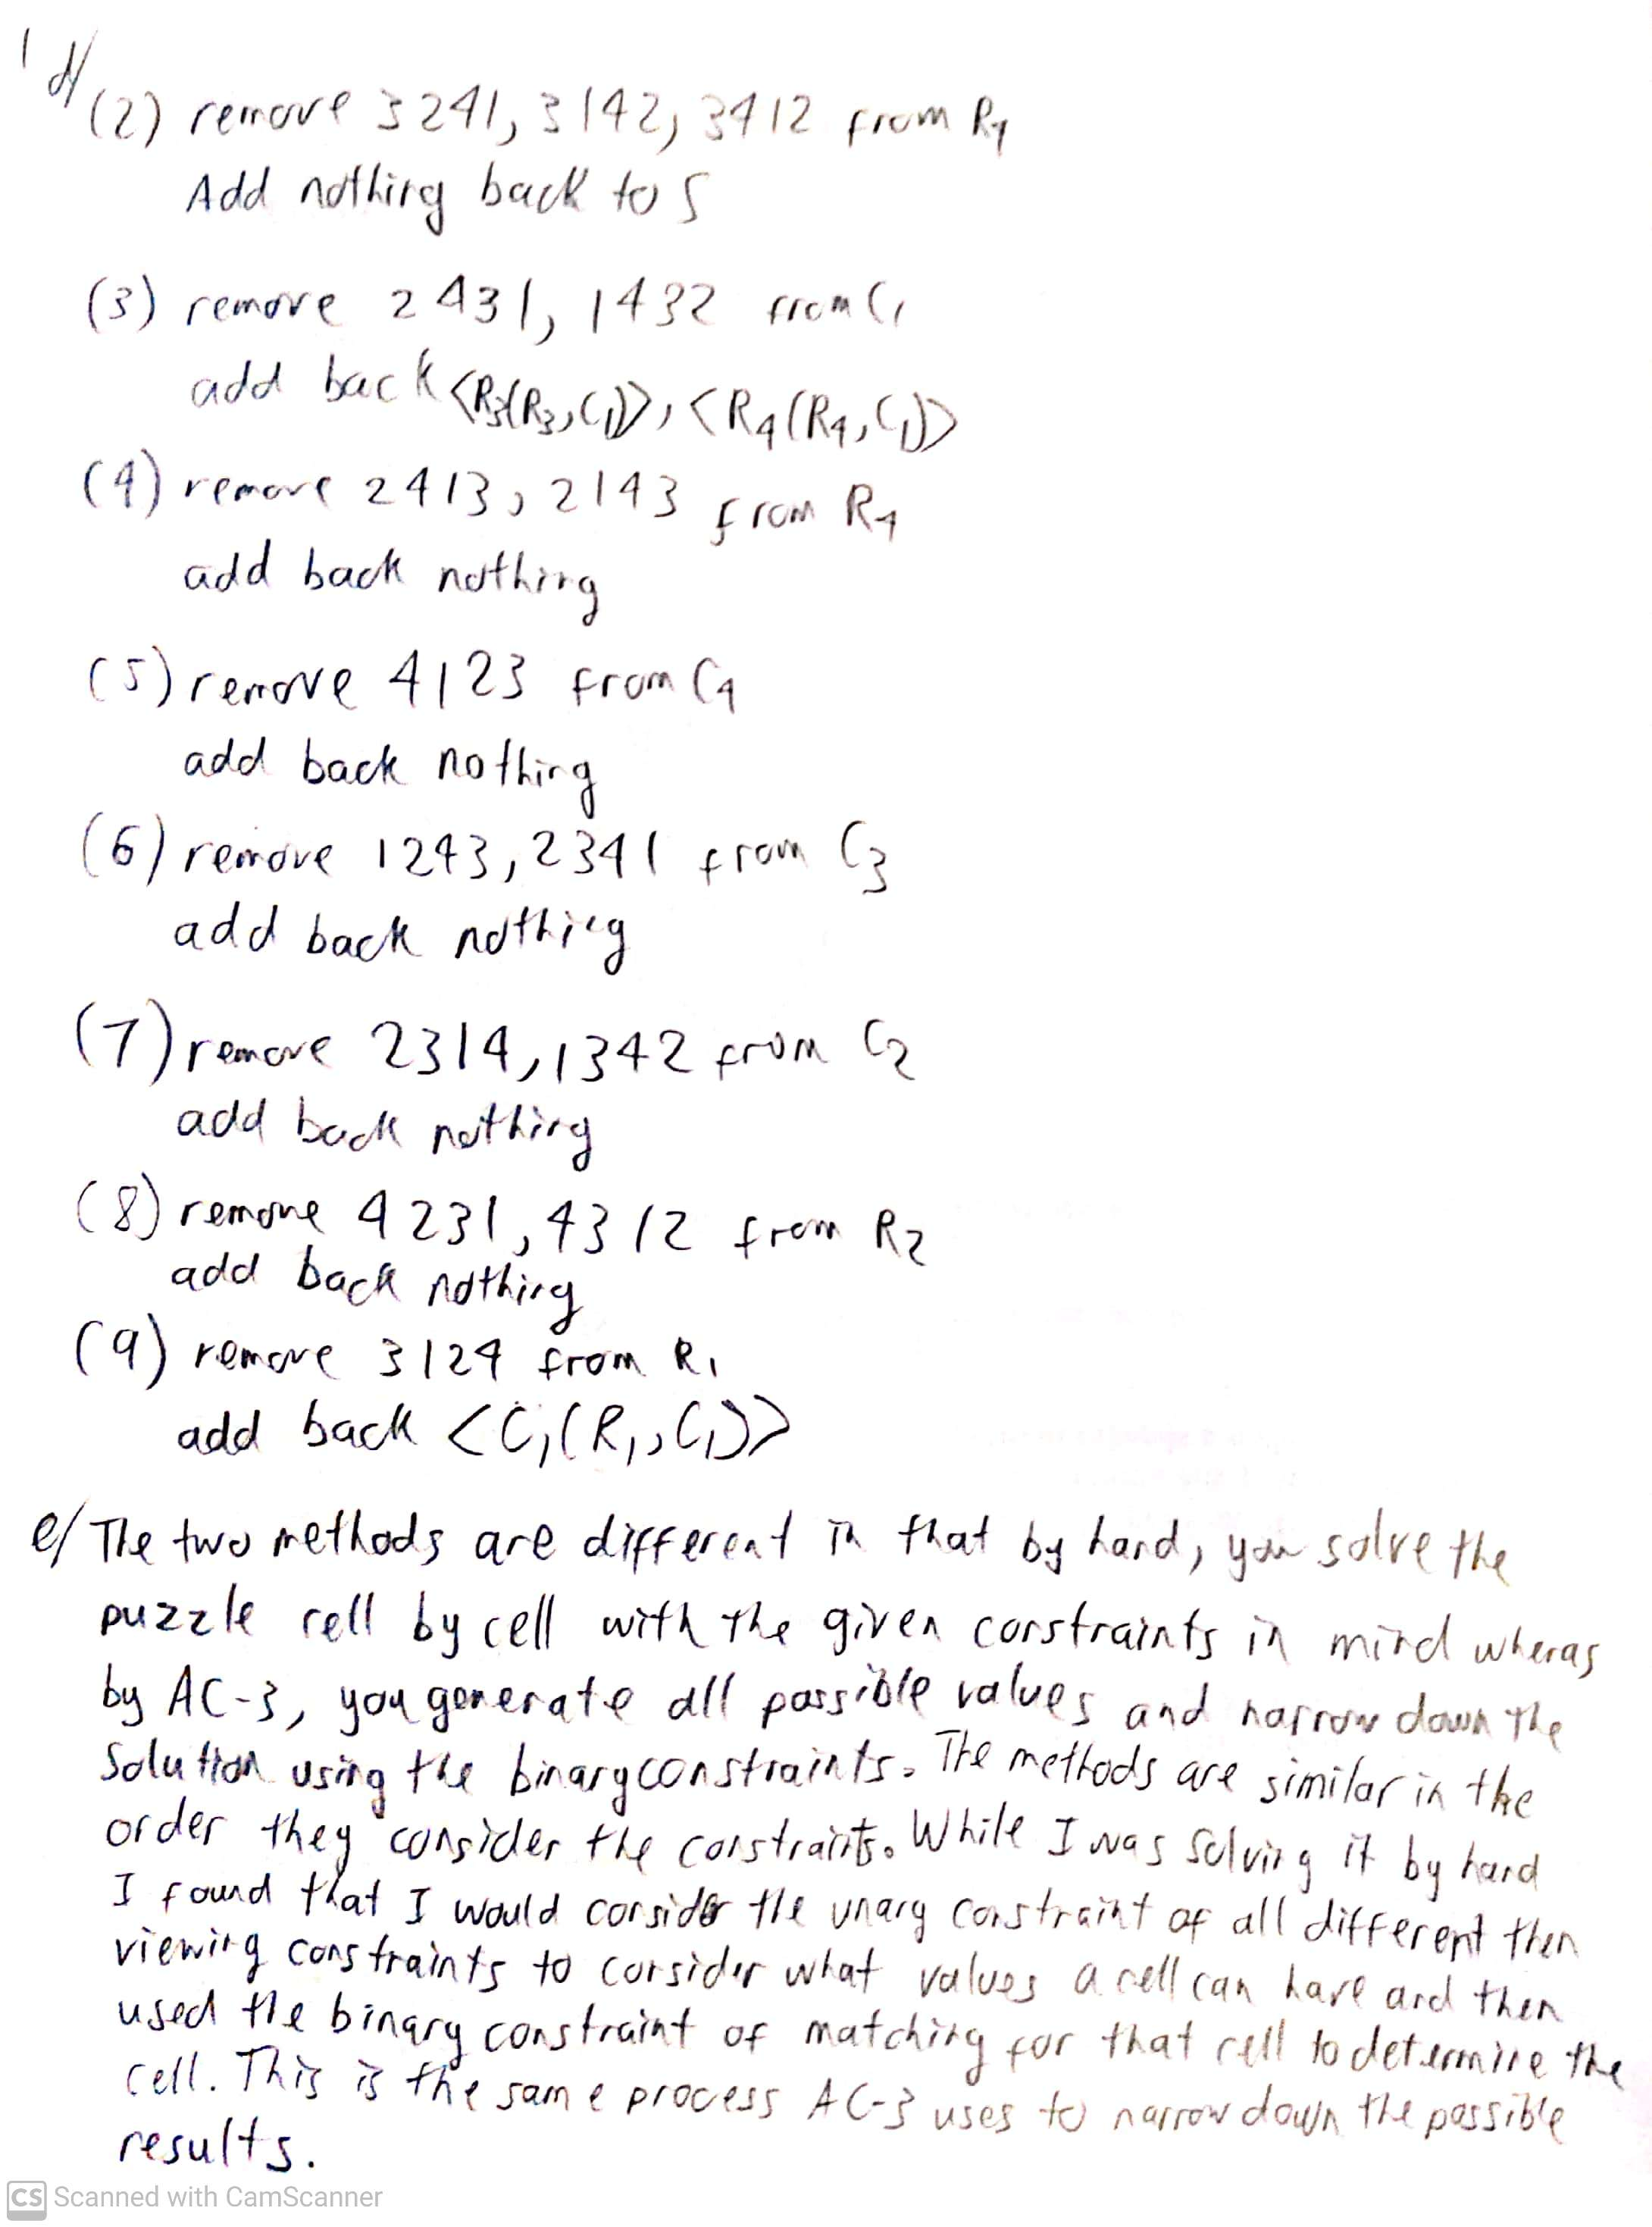 1 d/
(2) remove 3241, 3142, 3412 from R4
Add nothing back to S
(3) remove 2431, 1432 from C1
add back <R3(R3,C1)>, <R4(R4,C1)>
(4) remove 2413, 2143 from R4
add back nothing
(5) remove 4123 from C4
add back nothing
(6) remove 1243, 2341 from C3
add back nothing
(7) remove 2314, 1342 from C2
add back nothing
(8) remove 4231, 4312 from R2
add back nothing
(9) remove 3124 from R1
add back <C1(R1,C1)>
e/ The two methods are different in that by hand, you solve the
puzzle cell by cell with the given constraints in mind wheras
by AC-3, you generate all possible values and narrow down the
Solution using the binary constraints. The methods are similar in the
order they consider the constraints. While I was solving it by hand
I found that I would consider the unary constraint of all different then
viewing constraints to consider what values a cell can have and then
used the binary constraint of matching for that cell to determine the
cell. This is the same process AC-3 uses to narrow down the possible
results.
CS Scanned with CamScanner